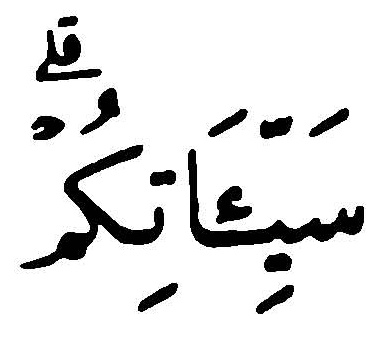 سَيِّئَاتِكُمْۗ